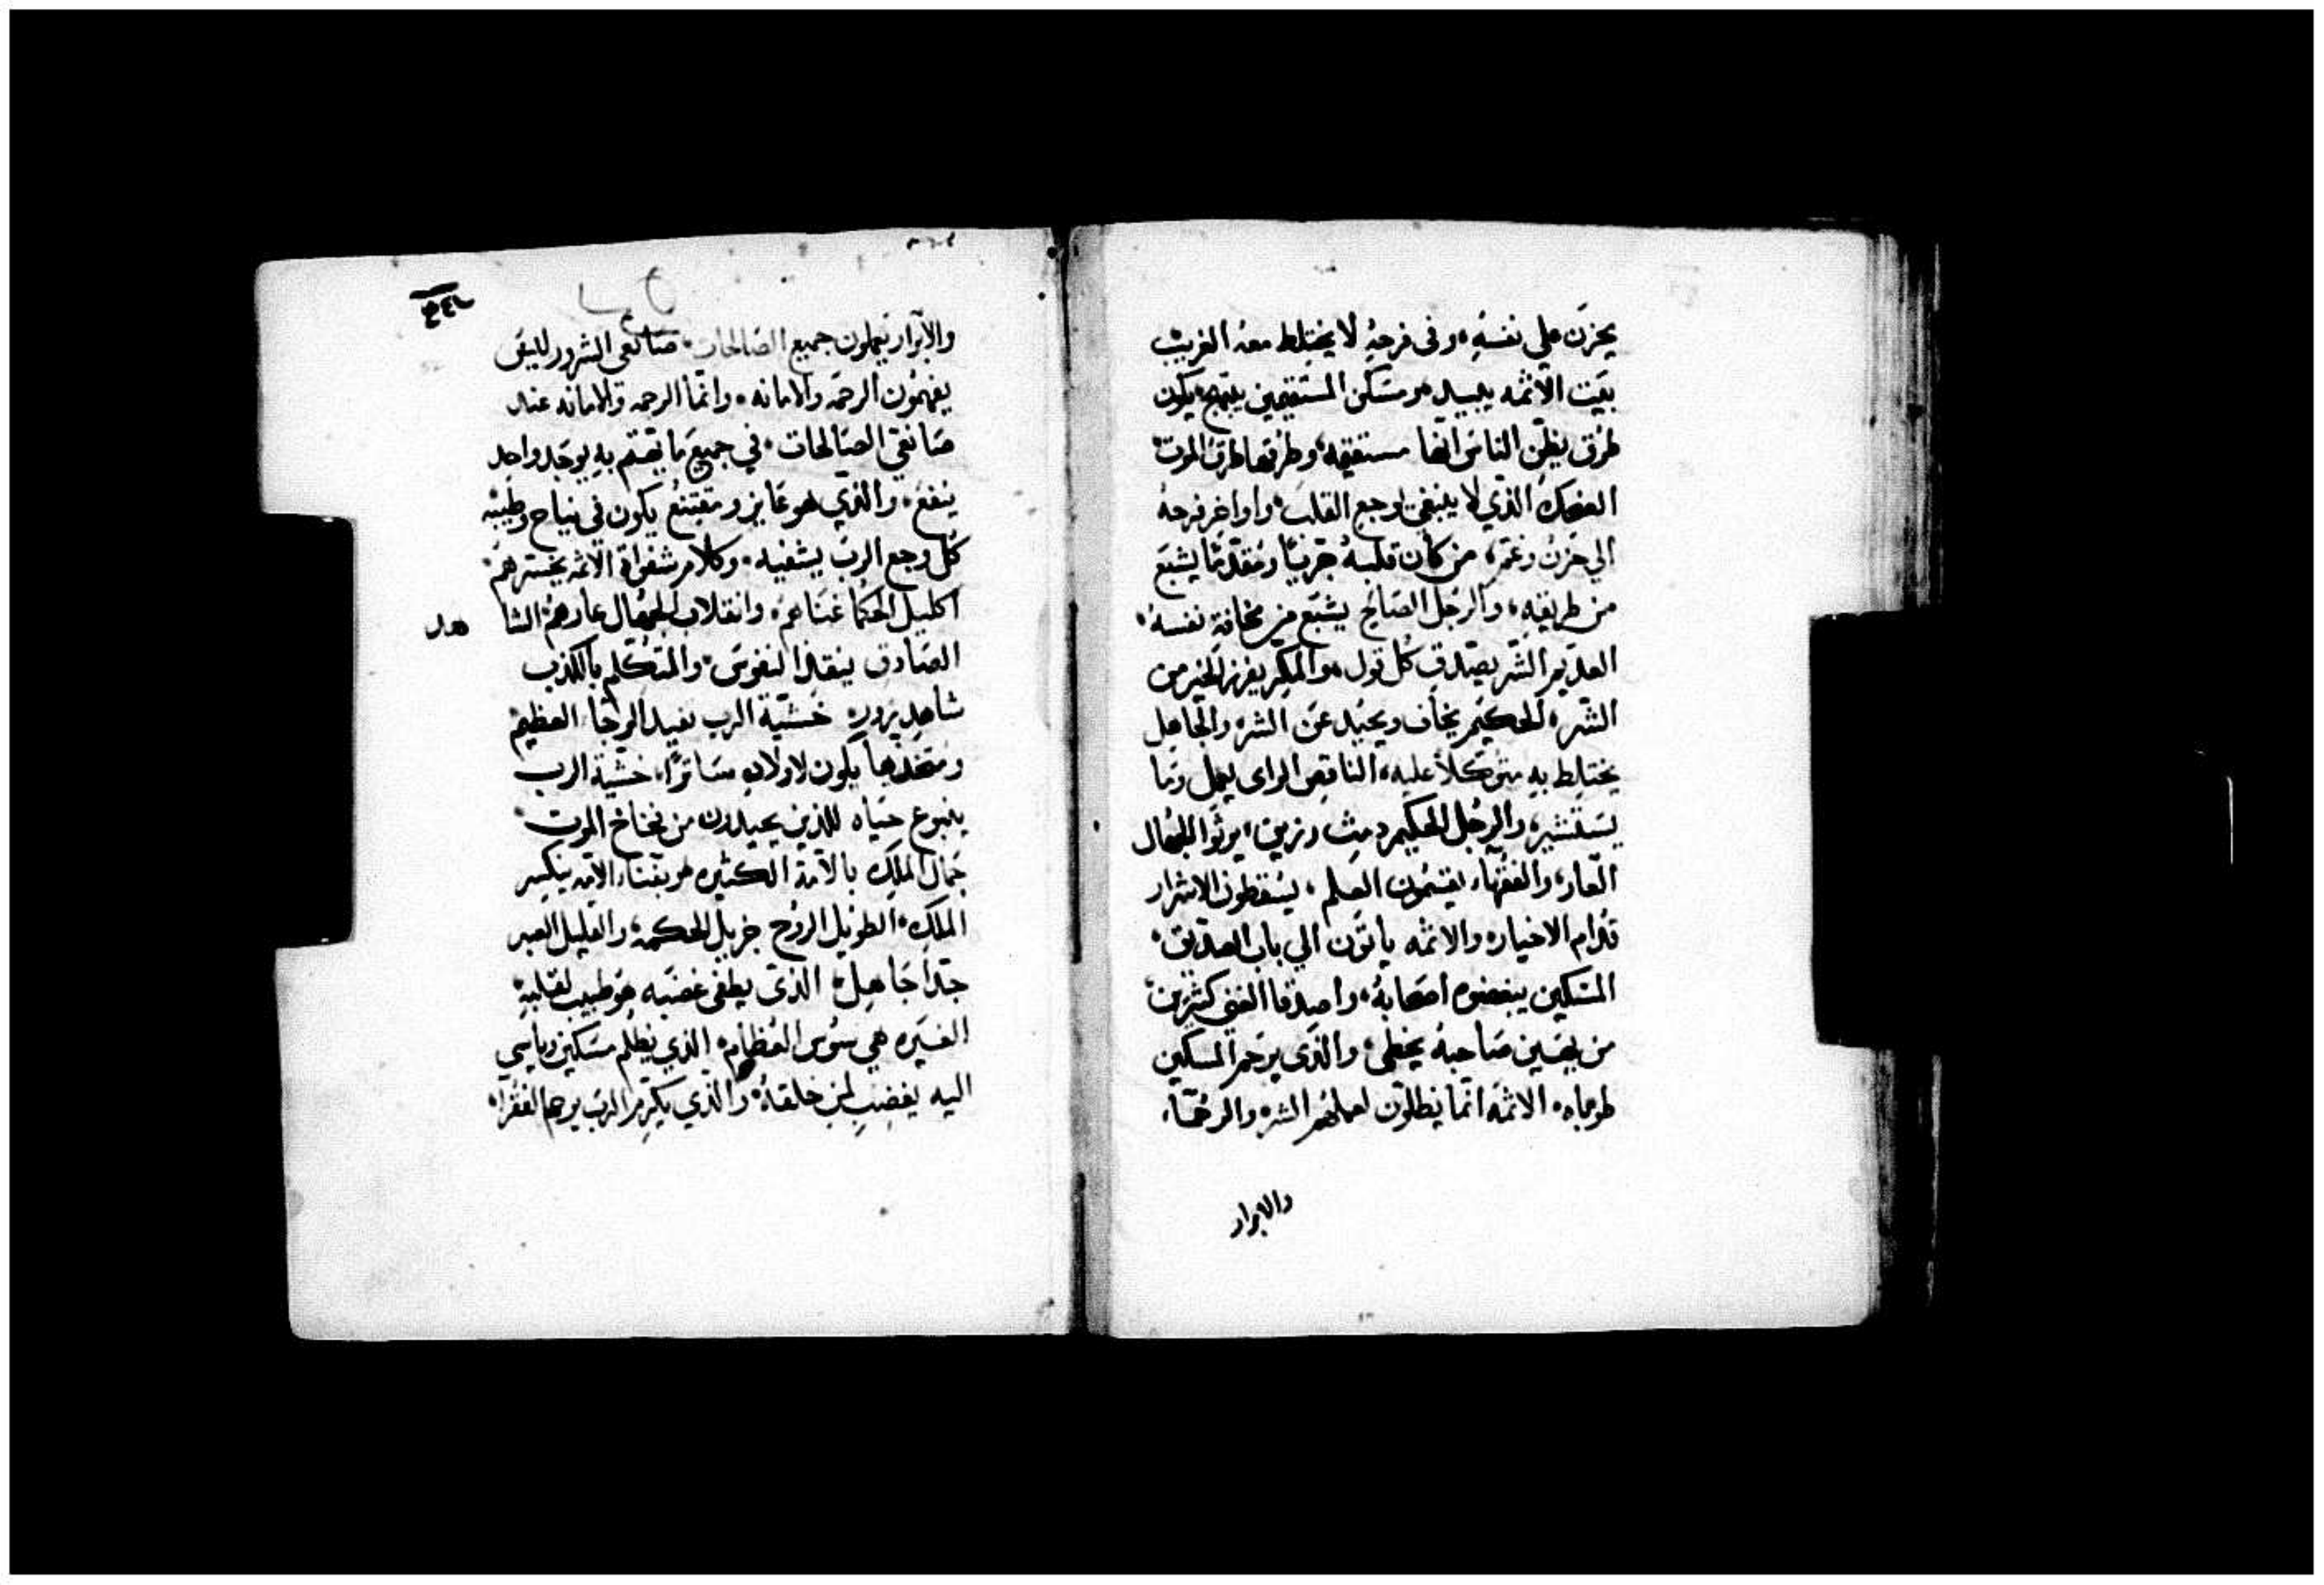 يحزن علي نفسه، وفى فرحهِ لا يختلط معه الغريب
بيت الاثمه يبيد، ومسكن المستقيمين يبتهج، يكون
طرق يظن الناس انها مستقيمه، وطرقها طرق الموت
الضحك الذي لا ينبغي لوجع القلب، واواخر فرحهُ
الي حزن وغم، من كان قلبه جريئًا ومقدمًا يشبع
من طريقه، والرجل الصالح يشبع من مخافة نفسه،
العديم الشر يصدق كل قول، والمكر يفرز الخير من
الشر، الحكيم يخاف ويحيد عن الشر، والجاهل
يختلط به متوكلاً عليه، الناقص الراى يعمل وما
يستشير، والرجل الحكيم دمث ورزين، يرثوا الجهال
العار، والفقهاء يقسمون العلم، يسقطون الاشرار
قدام الاخيار، والاثمه ياتون الي باب الصديق،
المسكين يبغضوه اصحابهُ، واصدقا الغني كثيرين
من يهين صاحبهُ يخطى، والذى يرحم المسكين
طوباه، الاثمه انما يضلون لعملهم الشر، والرحما،
والابرار
والابرار يعملون جميع الصالحات، صانعى الشرور لليس
يفهمون الرحمه والامانه، وانما الرحمه والامانه عند
صانعي الصالحات، في جميع ما تهتم بهِ يوجد واحد
ينفع، والذي هو عايز ومقتنع يكون في نياح وطيبه
كل وجع الرب يشفيه، وكلام شفاة الاثمه يخسرهم
اكليل الحكما غناهم، وانقلاب الجهال عارهم، الشا
هد
الصادق ينقذ النفوس، والمتكلم بالكذب
شاهد زور، خشية الرب تفيد الرجا العظيم
ومتخذها يكون لاولاده ساترًا، خشية الرب
ينبوع حياه للذين يحيدون من فخاخ الموت
جمال الملك بالامة الكثيره، وبفناء الامه ينكسر
الملك، الطويل الروح جزيل الحكمه، والقليل الصبر
جداً جاهل، الذى يطفى غضبه هو طبيب لقلبهِ
الغيره هي سوس العظام، الذي يظلم مسكين وياسي
اليه يغضب لمن خلقهُ، والذي يكرم الرب يرحم الفقرا،